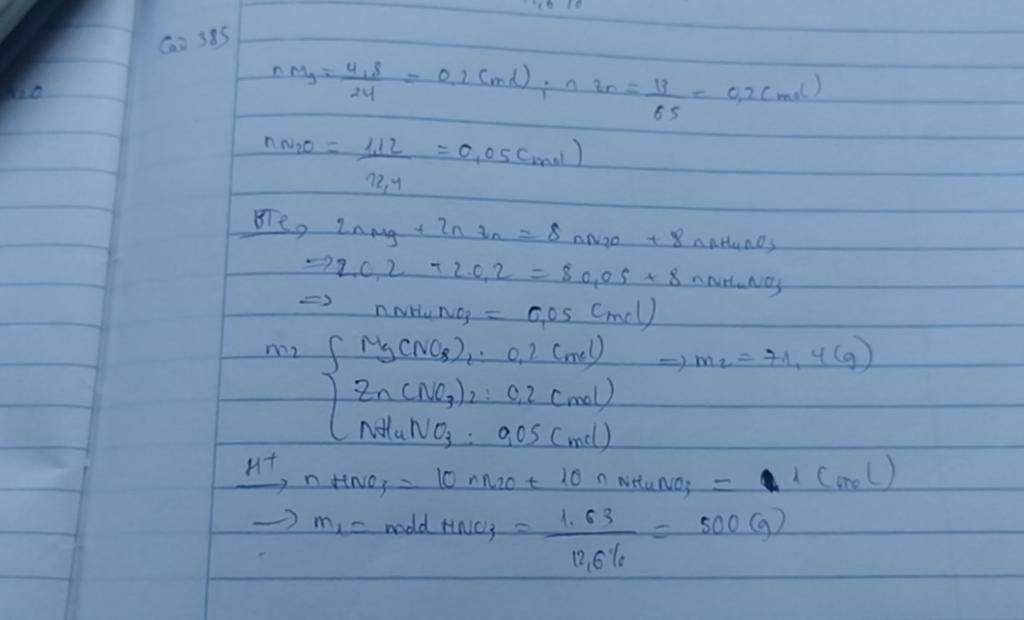 Câu 385
nMg = 4,8/24 = 0,2 (mol); n Zn = 13/65 = 0,2 (mol)
nN2O = 1,12/22,4 = 0,05 (mol)
BTe→ 2nMg + 2n Zn = 8 nN2O + 8 nNH4NO3
=> 2.0,2 + 2.0,2 = 8.0,05 + 8 nNH4NO3
=> nNH4NO3 = 0,05 (mol)
m2 { Mg(NO3)2: 0,2 (mol) => m2 = 71,4 (g)
Zn(NO3)2: 0,2 (mol)
NH4NO3: 0,05 (mol)
H+→ n HNO3 = 10 nN2O + 10 n NH4NO3 = 1 (mol)
→ m1 = mdd HNO3 = 1.63/12,6% = 500 (g)